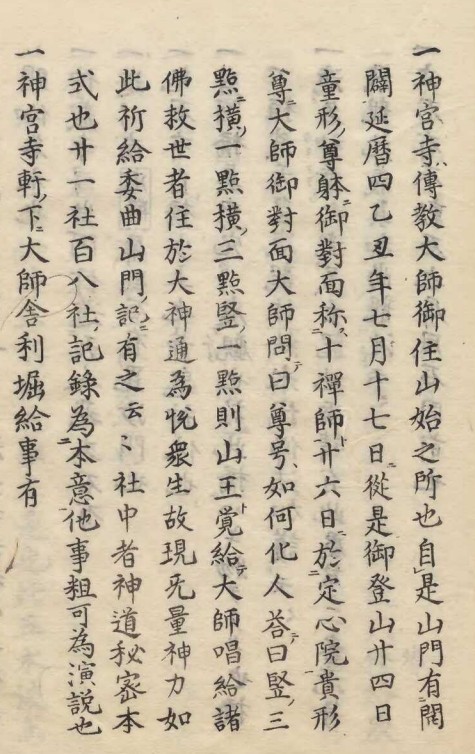 一神宮寺、傳教大師御住山始之所也自是山門有開
闢延暦四乙丑年七月十七日ニ從是御登山廿四日
童形ノ尊躰ニ御對面称ス十禪師ト廿六日ニ於テ定心院ニ貴形
尊ニ大師御對面大師問テ曰尊号、如何化人荅テ曰竪ノ三
㸃ニ横ノ一㸃横ノ三㸃竪ノ一㸃則山王ト覚給テ大師唱給諸
佛救世者住於大神通為悦衆生故現无量神力如
此祈給委曲山門ノ記ニ有之云〻社中者神道秘密本
式也廿一社百八社ノ記録為ニ本意他事粗可為演説也
一神宮寺軒ノ下ニ大師舎利堀給事有